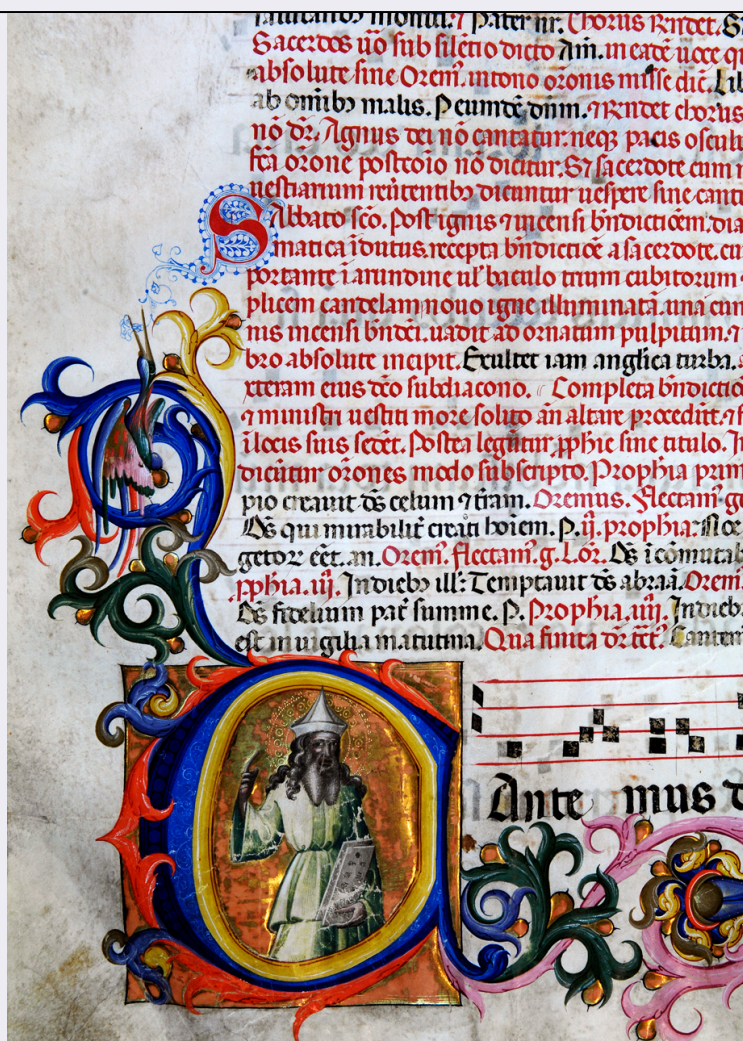 Pater nr. Chorus Rndet. S
Sacerdos uo sub siletio dicto Am. in eade uoce q
absolute sine Orem. in tono oronis misse dic. Lib
ab omibz malis. P eumde dnm. ⁊ Rndet chorus
no dr. Agnus dei no cantatur. neqz pacis oscul
fca orone postcoio no dicitur. Et sacerdote cum
uestiarium reutentibz dicuntur uespere sine cant
SAbbato sco. Post ignis ⁊ incensi bndictioem. dia
matica idutus. recepta bndictioe a sacerdote. cu
portante i arundine ul' baculo trium cubitorum
plicem candelam nouo igne illuminata. una cum
nis incensi bndci. uadit ad ornatum pulpitum. ⁊
bro absolute incipit. Exultet iam anglica turba.
xteram eius dco subdiacono. Completa bndictio
⁊ ministri uestiti more solito an altare procedut. ⁊
i locis suis sedet. Postea legutur pphie sine titulo. I
dicutur orones modo subscripto. Prophia prim
pio creauit ds celum ⁊ tram. Oremus. Flectam. g
Ds qui mirabilit creasti hoiem. P. ij. prophia. Noe
getor cet. an. Orem. flectam. g. Lor. Ds i comutab
pphia. iij. In diebz ill': Temptauit ds abraa. Orem
Ds fidelium pat summe. P. Prophia. iiij. In dieb
est in uigilia matutina. Qua finita dr tct. Cantem
CAnte mus d